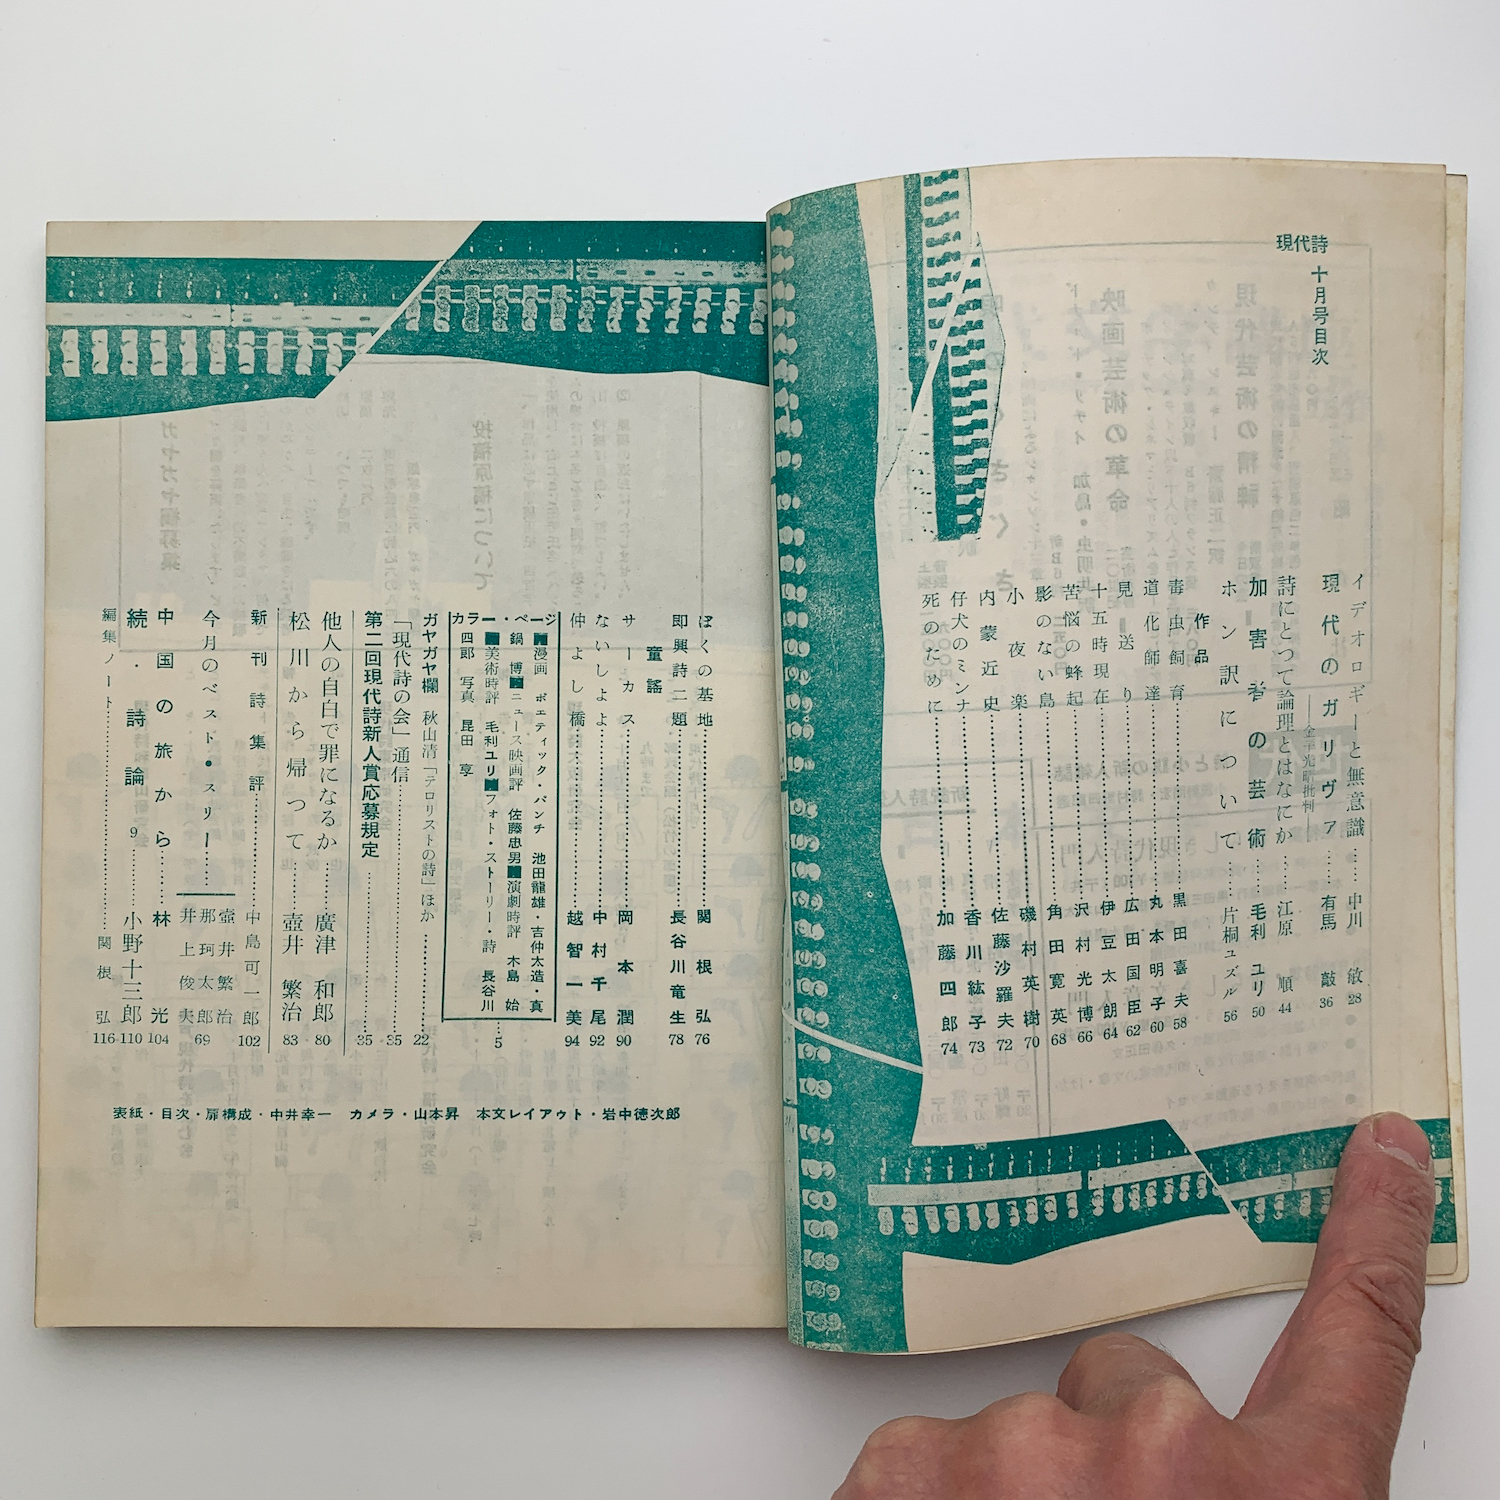 現代詩
十月号目次
イデオロギーと無意識……中川 敏 28
現代のガリヴァ……有馬 敲 36
詩にとつて論理とはなにか……江原 順 44
加害者の芸術……毛利ユリ 50
ホン訳について……片桐ユズル 56
作品
毒虫飼育……黒田喜夫 58
道化師達……丸本明子 60
見送り……広田国臣 62
十五時現在……伊豆太朗 64
苦悩の蜂起……沢村光博 66
影のない島……角田寛英 68
小夜楽……磯村英樹 70
内蒙近史……佐藤沙羅夫 72
仔犬のミンナ……香川紘子 73
死のために……加藤四郎 74
ぼくの基地……関根弘 76
即興詩二題……長谷川竜生 78
童謡
サーカス……岡本潤 90
ないしよよ……中村千尾 92
仲よし橋……越智一美 94
カラー・ページ
漫画 ポエティック・パンチ 池田龍雄・吉仲太造・真
鍋 博 ニュース映画評 佐藤忠男 演劇時評 木島 始……5
美術時評 毛利ユリ フォト・ストーリー・詩 長谷川
四郎 写真 昆田 享
ガヤガヤ欄 秋山清「テロリストの詩」ほか……22
「現代詩の会」通信……35
第二回現代詩新人賞応募規定……35
他人の自白で罪になるか……廣津和郎 80
松川から帰つて……壺井繁治 83
新刊詩集評……中島可一郎 102
今月のベスト・スリー……壺井繁治 那珂太郎 井上俊夫 69
中国の旅から……林 光 104
続・詩論 9……小野十三郎 110
編集ノート……関根 弘 116
表紙・目次・扉構成・中井幸一 カメラ・山本昇 本文レイアウト・岩中徳次郎